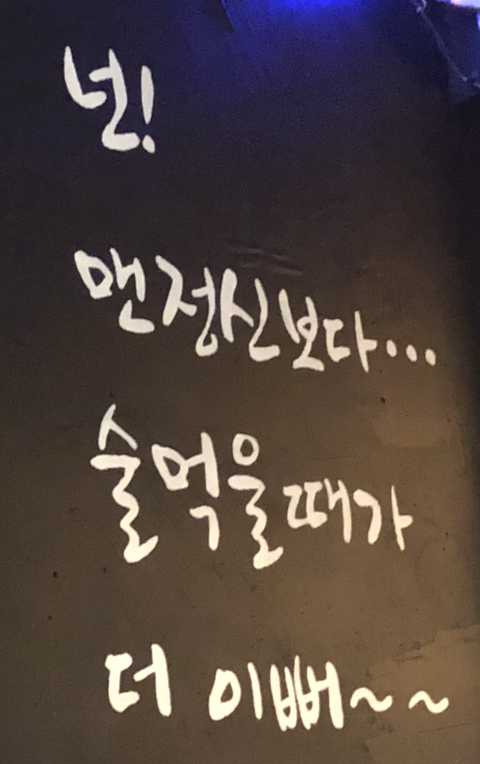 넌!
맨정신보다...
술먹을때가
더 이뻐~~